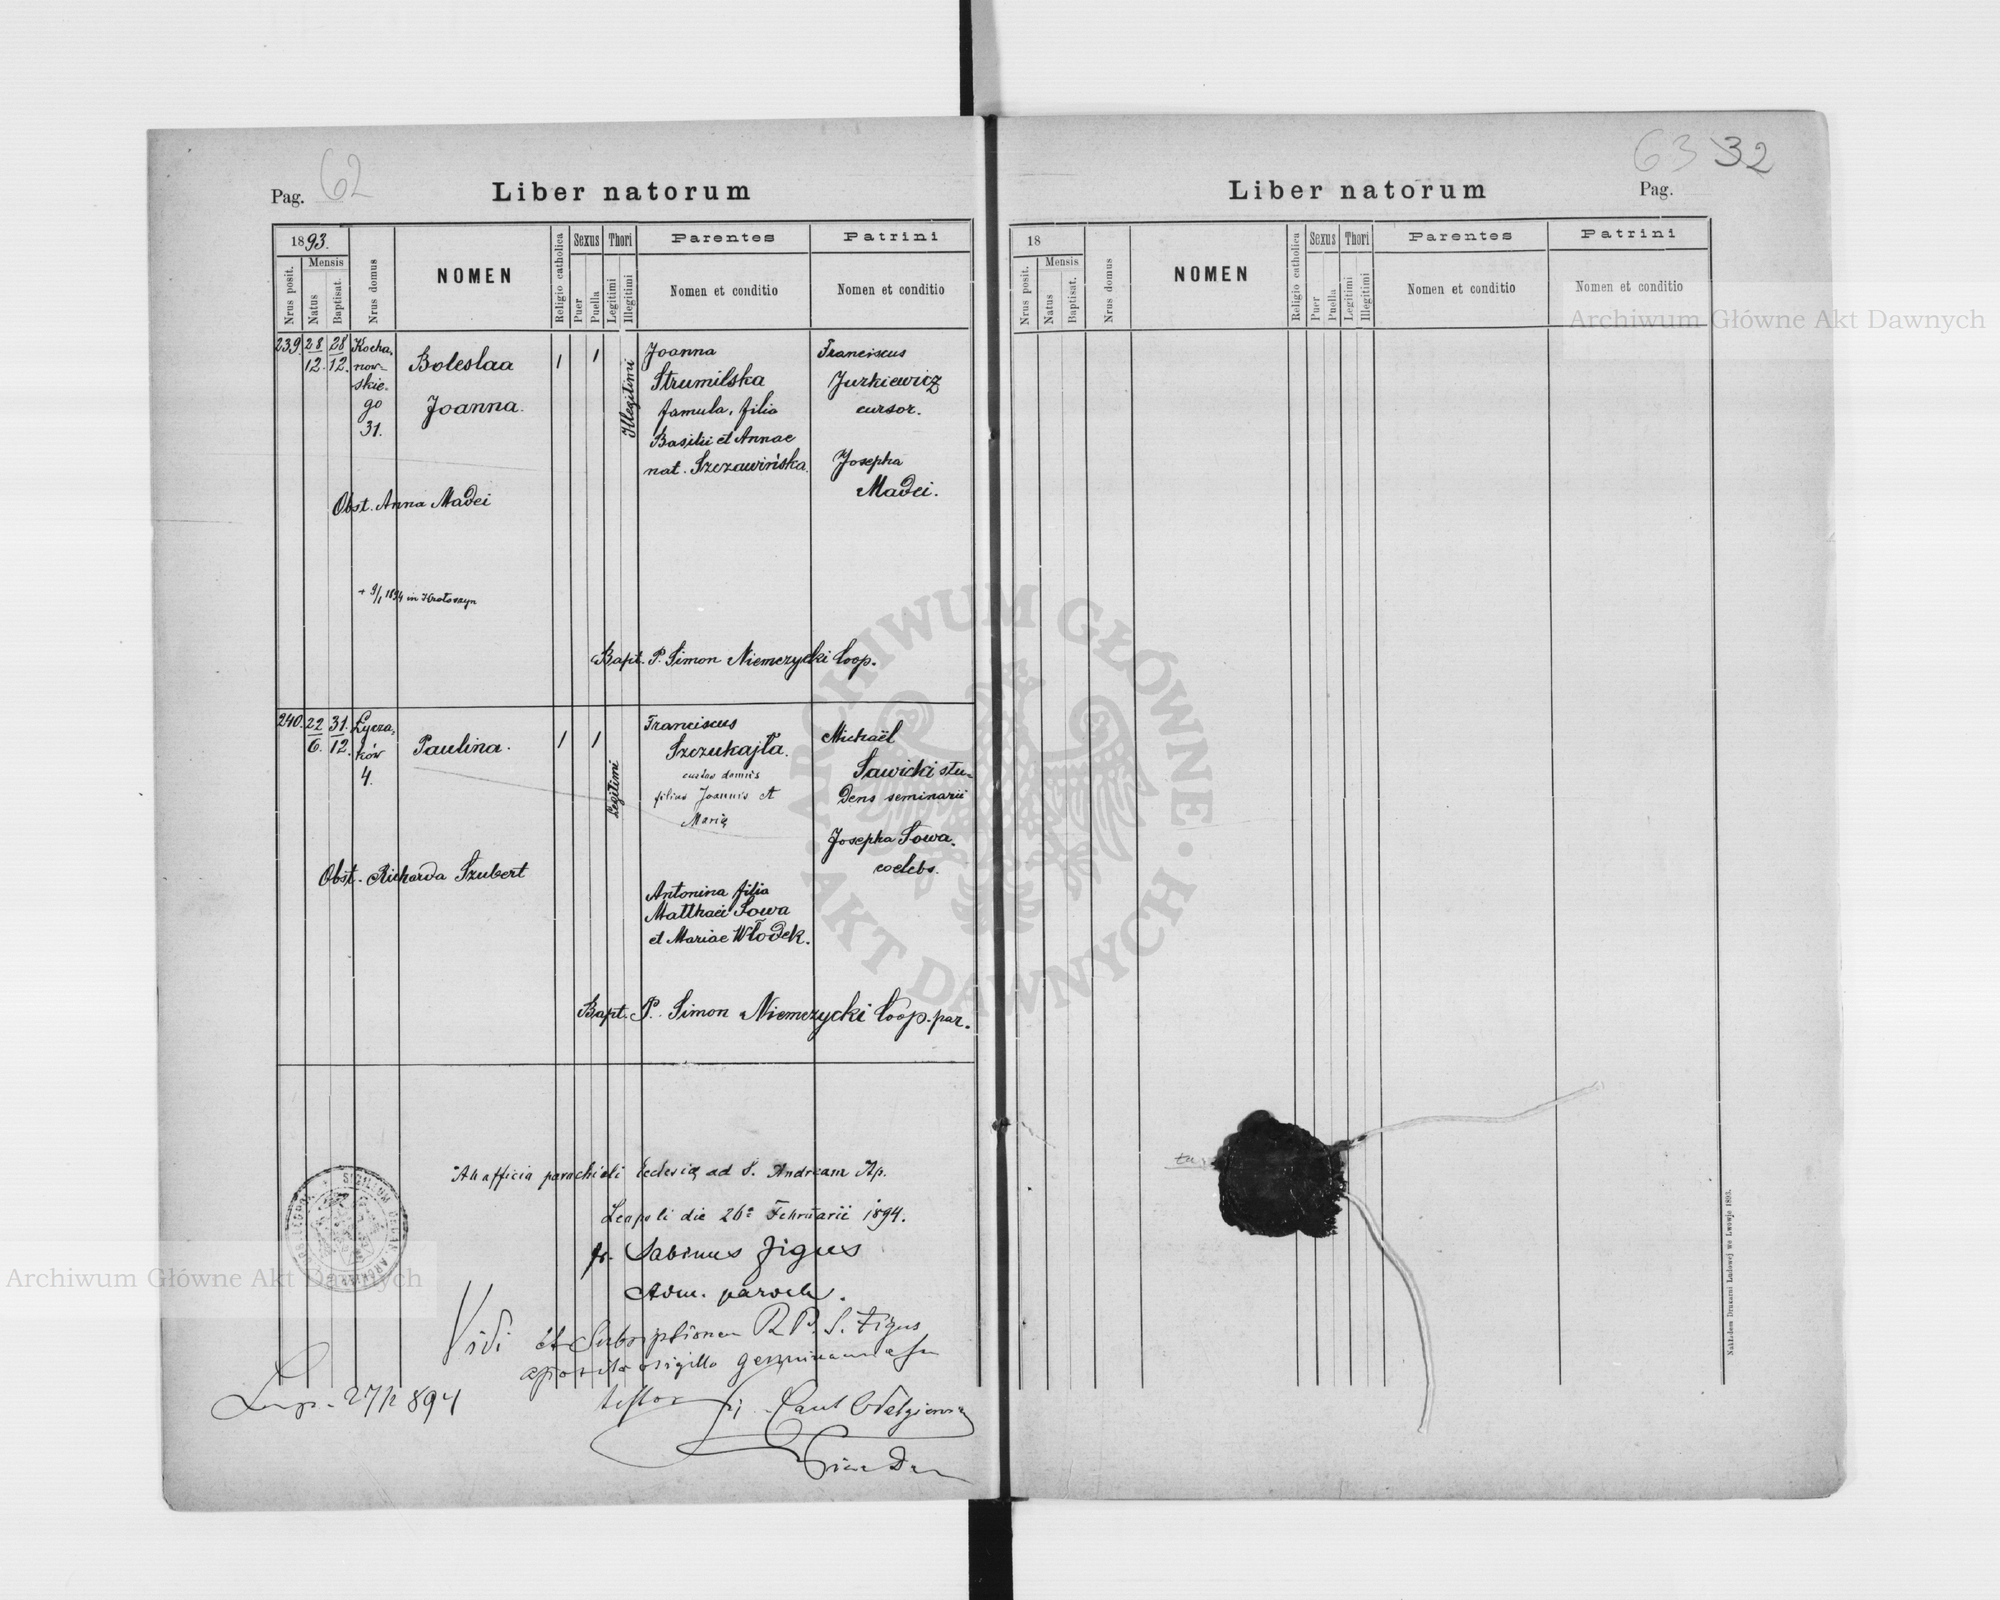 Pag. 62
Liber natorum
1893.
Nrus posit.
Mensis
Natus
Baptisat.
Nrus domus
NOMEN
Religio catholica
Sexus
Puer
Puella
Thori
Legitimi
Illegitimi
Parentes
Nomen et conditio
Patrini
Nomen et conditio
239. 28/12. 28/12.
Kocha-
now-
skie-
go
31.
Boleslaa
Joanna.
1 1
Illegitimi
Joanna
Strumilska
famula, filia
Basilii et Annae
nat. Szczawińska.
Franciscus
Jurkiewicz
cursor.
Josepha
Madei.
Obst. Anna Madei
+ 9/1 1894 in Krotoszyn
Bapt. P. Simon Niemczycki Coop.
240. 22/6. 31./12.
Łycza-
ków
4.
Paulina.
1 1
Legitimi
Franciscus
Szczukajła.
custos domus
filius Joannis et
Marię
Antonina filia
Matthaei Sowa
et Mariae Włodek.
Michaël
Sawicki stu-
dens seminarii
Josepha Sowa.
coelebs.
Obst. Richarda Szubert
Bapt. P. Simon Niemczycki Coop. par.
Ab officio parochiali Ecclesię ad S. Andream Ap.
Leopoli die 26ª Februarii 1894.
fr. Sabinus Figus
Adm. paroch.
Vidi et Subscriptionem RP. S. Figus
apposito sigillo genuinam esse
testor
Leop. 27/2 894
63 32
Liber natorum
Pag.
18
Nrus posit.
Mensis
Natus
Baptisat.
Nrus domus
NOMEN
Religio catholica
Sexus
Puer
Puella
Thori
Legitimi
Illegitimi
Parentes
Nomen et conditio
Patrini
Nomen et conditio
Nakładem Drukarni Ludowej we Lwowie 1893.
Archiwum Główne Akt Dawnych
Archiwum Główne Akt Dawnych
ARCHIWUM GŁÓWNE · AKT DAWNYCH ·